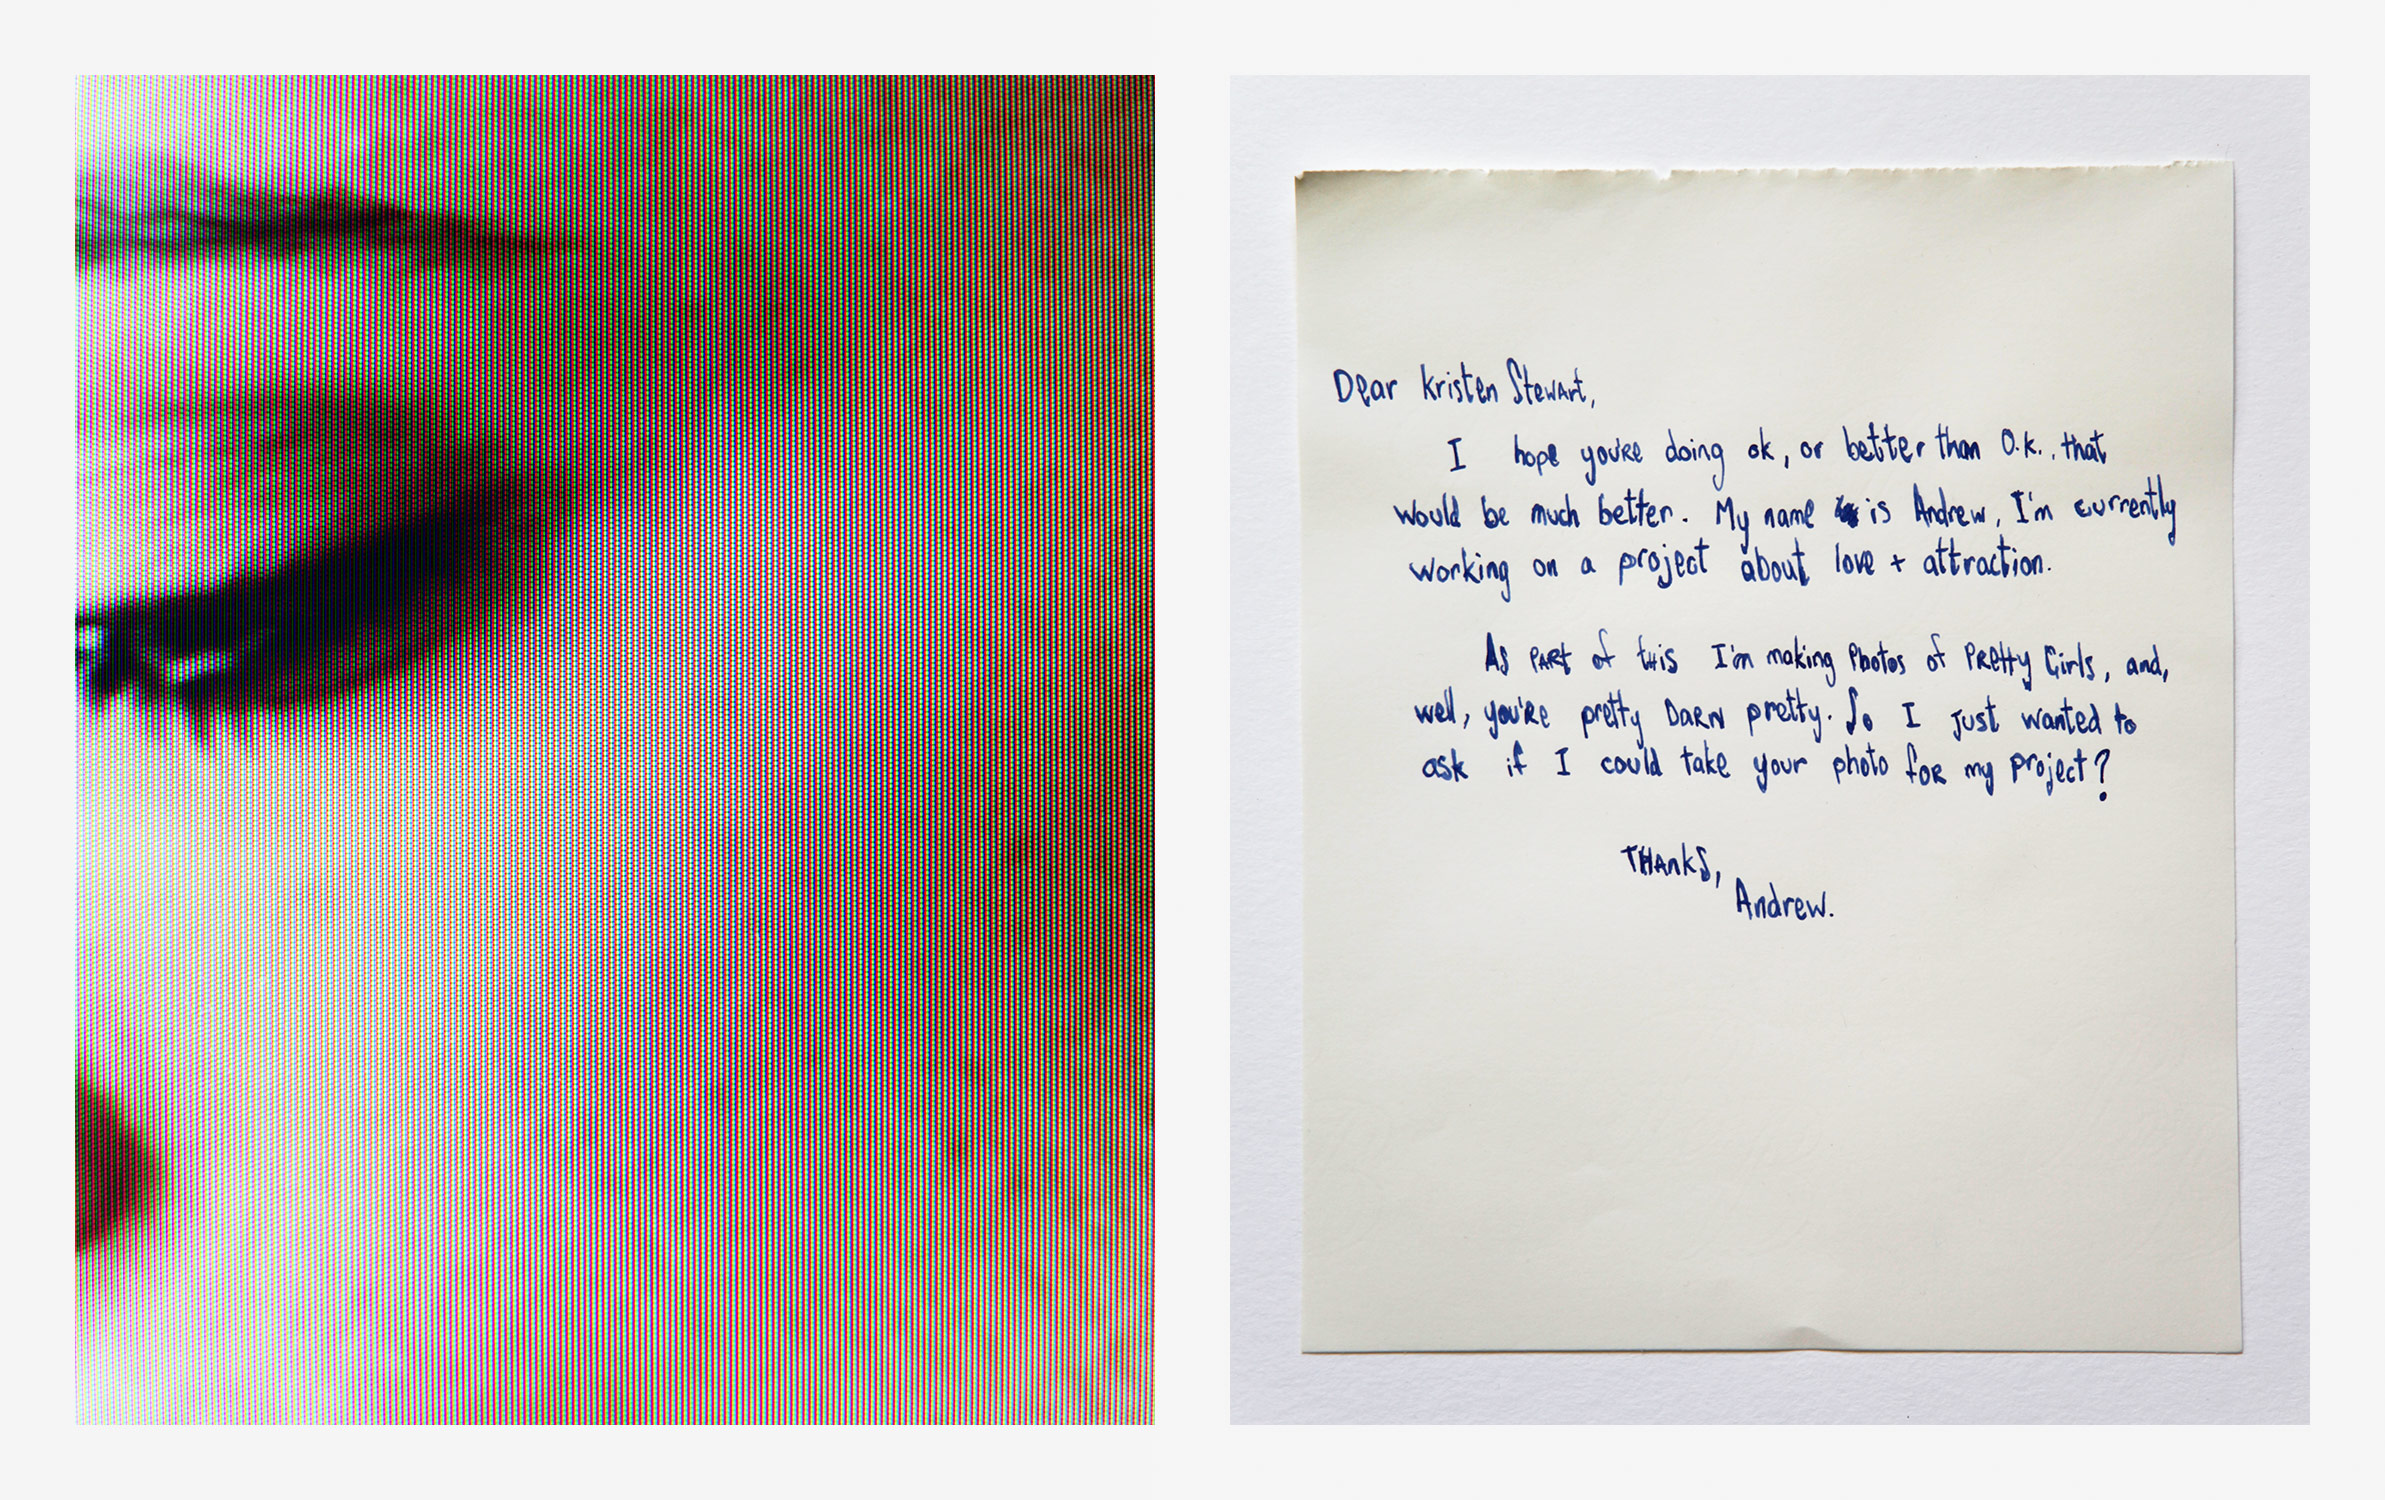 Dear Kristen Stewart,
I hope you're doing ok, or better than O.K., that
would be much better. My name is Andrew, I'm currently
working on a project about love + attraction.
As PART of this I'm making Photos of PRetty Girls, and,
well, you're pretty DARN pretty. So I just wanted to
ask if I could take your photo foR my project?
THAnkS,
Andrew.